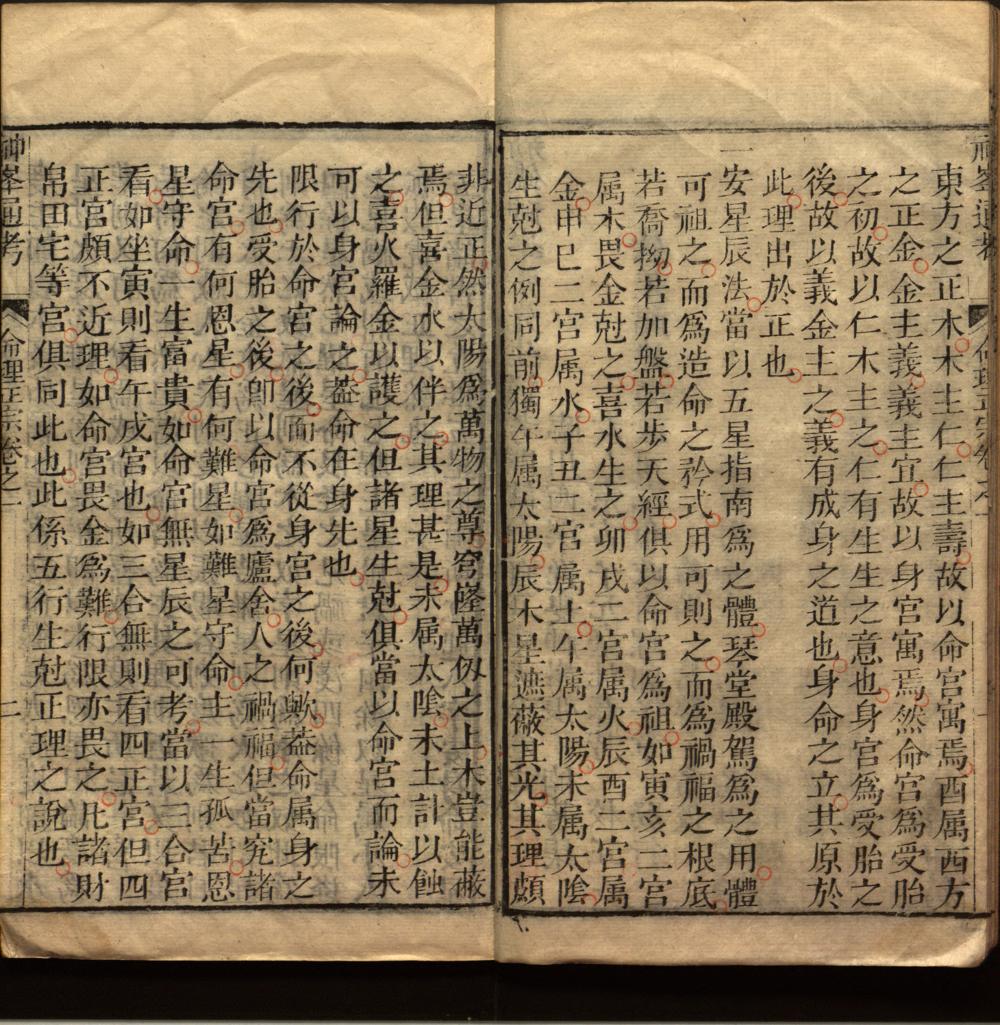 東方之正木木主仁仁主壽故以命宮寓焉西属西方
之正金金主義義主宜故以身宮寓焉然命宮爲受胎
之初故以仁木主之仁有生生之意也身宮爲受胎之
後故以義金主之義有成身之道也身命之立其原於
此理出於正也
一安星辰法當以五星指南爲之體琴堂殿駕爲之用體
可祖之而爲造命之矜式用可則之而爲禍福之根底
若喬拗若加盤若步天經俱以命宮爲祖如寅亥二宮
属木畏金尅之喜水生之卯戌二宮属火辰酉二宮属
金申巳二宮属水子丑二宮属土午属太陽未属太陰
生尅之例同前獨午属太陽辰木星遮蔽其光其理頗
非近正然太陽爲萬物之尊穹窿萬仭之上木豈能蔽
焉但喜金水以伴之其理甚是未属太陰未土計以蝕
之喜火羅金以護之但諸星生尅俱當以命宮而論未
可以身宮論之葢命在身先也
限行於命宮之後而不從身宮之後何歟葢命属身之
先也受胎之後卽以命宮爲廬舍人之禍福但當究諸
命宮有何恩星有何難星如難星守命主一生孤苦恩
星守命一生富貴如命宮無星辰之可考當以三合宮
看如坐寅則看午戌宮也如三合無則看四正宮但四
正宮頗不近理如命宮畏金爲難行限亦畏之凡諸財
帛田宅等宮俱同此也此係五行生尅正理之說也
神峯通考 命理正宗卷之一 二